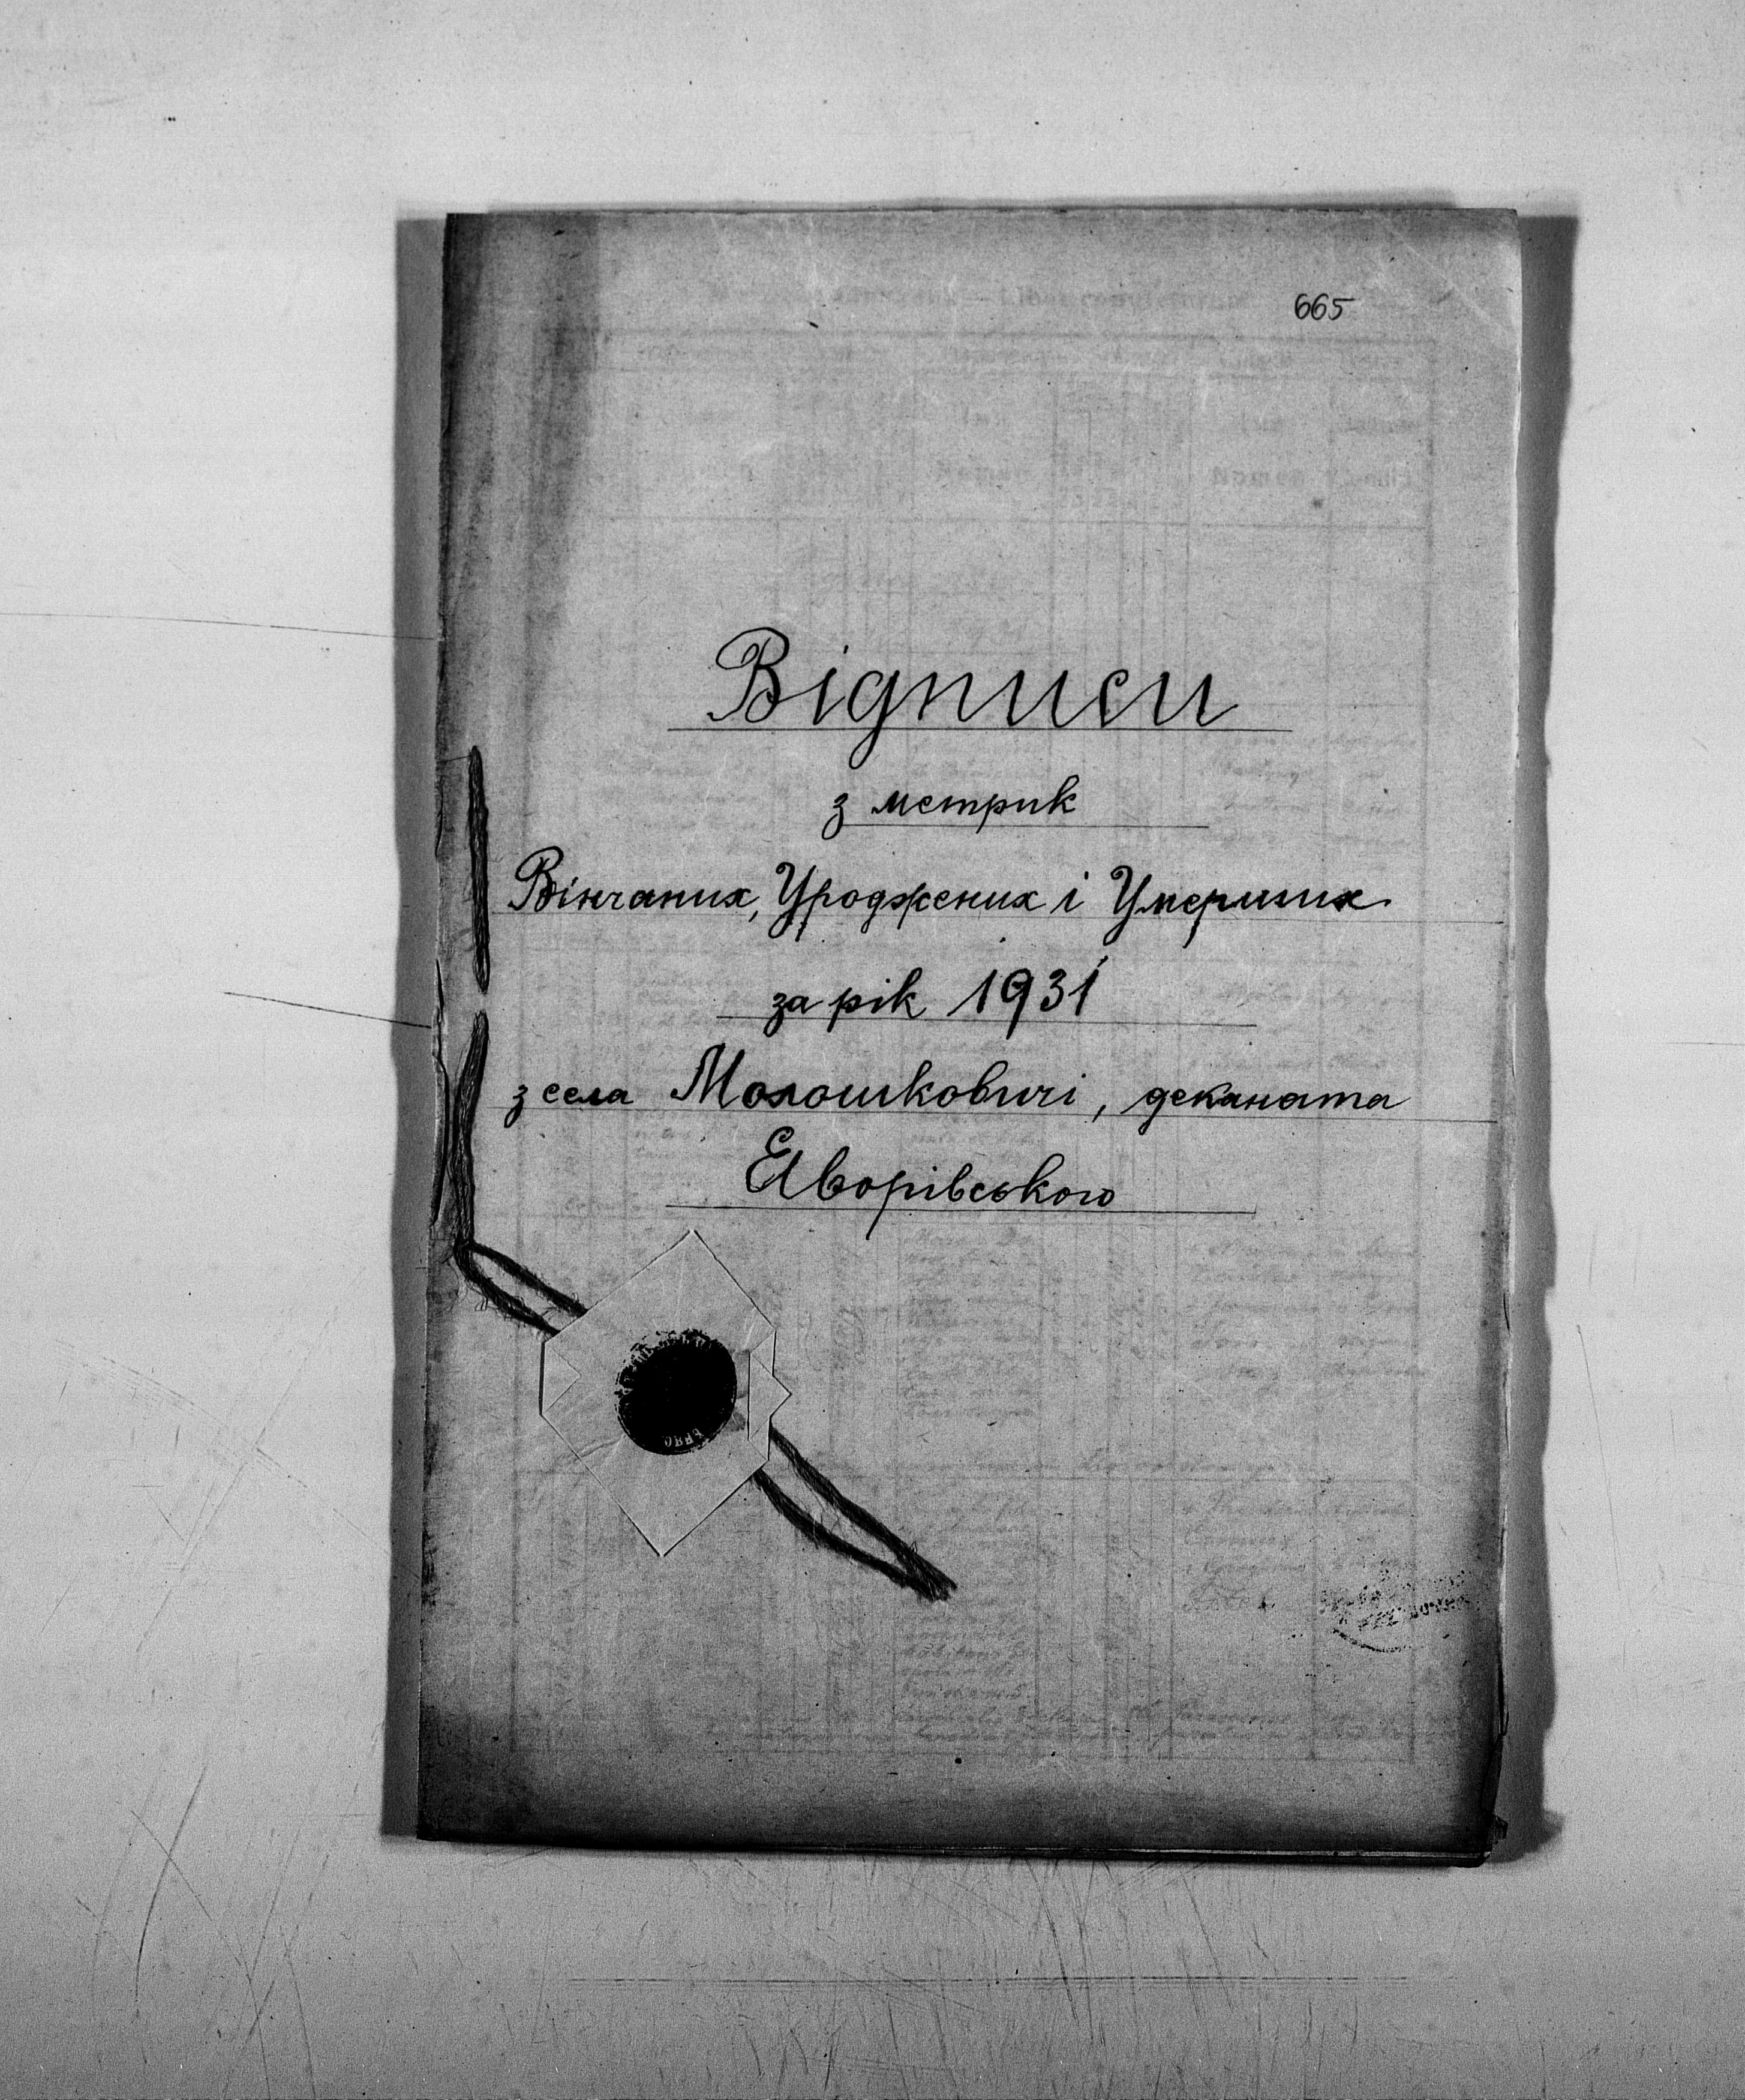 665
Відписи
з метрик
Вінчаних, Уроджених і Умерших
за рік 1931
з села Молошковичі, деканата
Яворівського